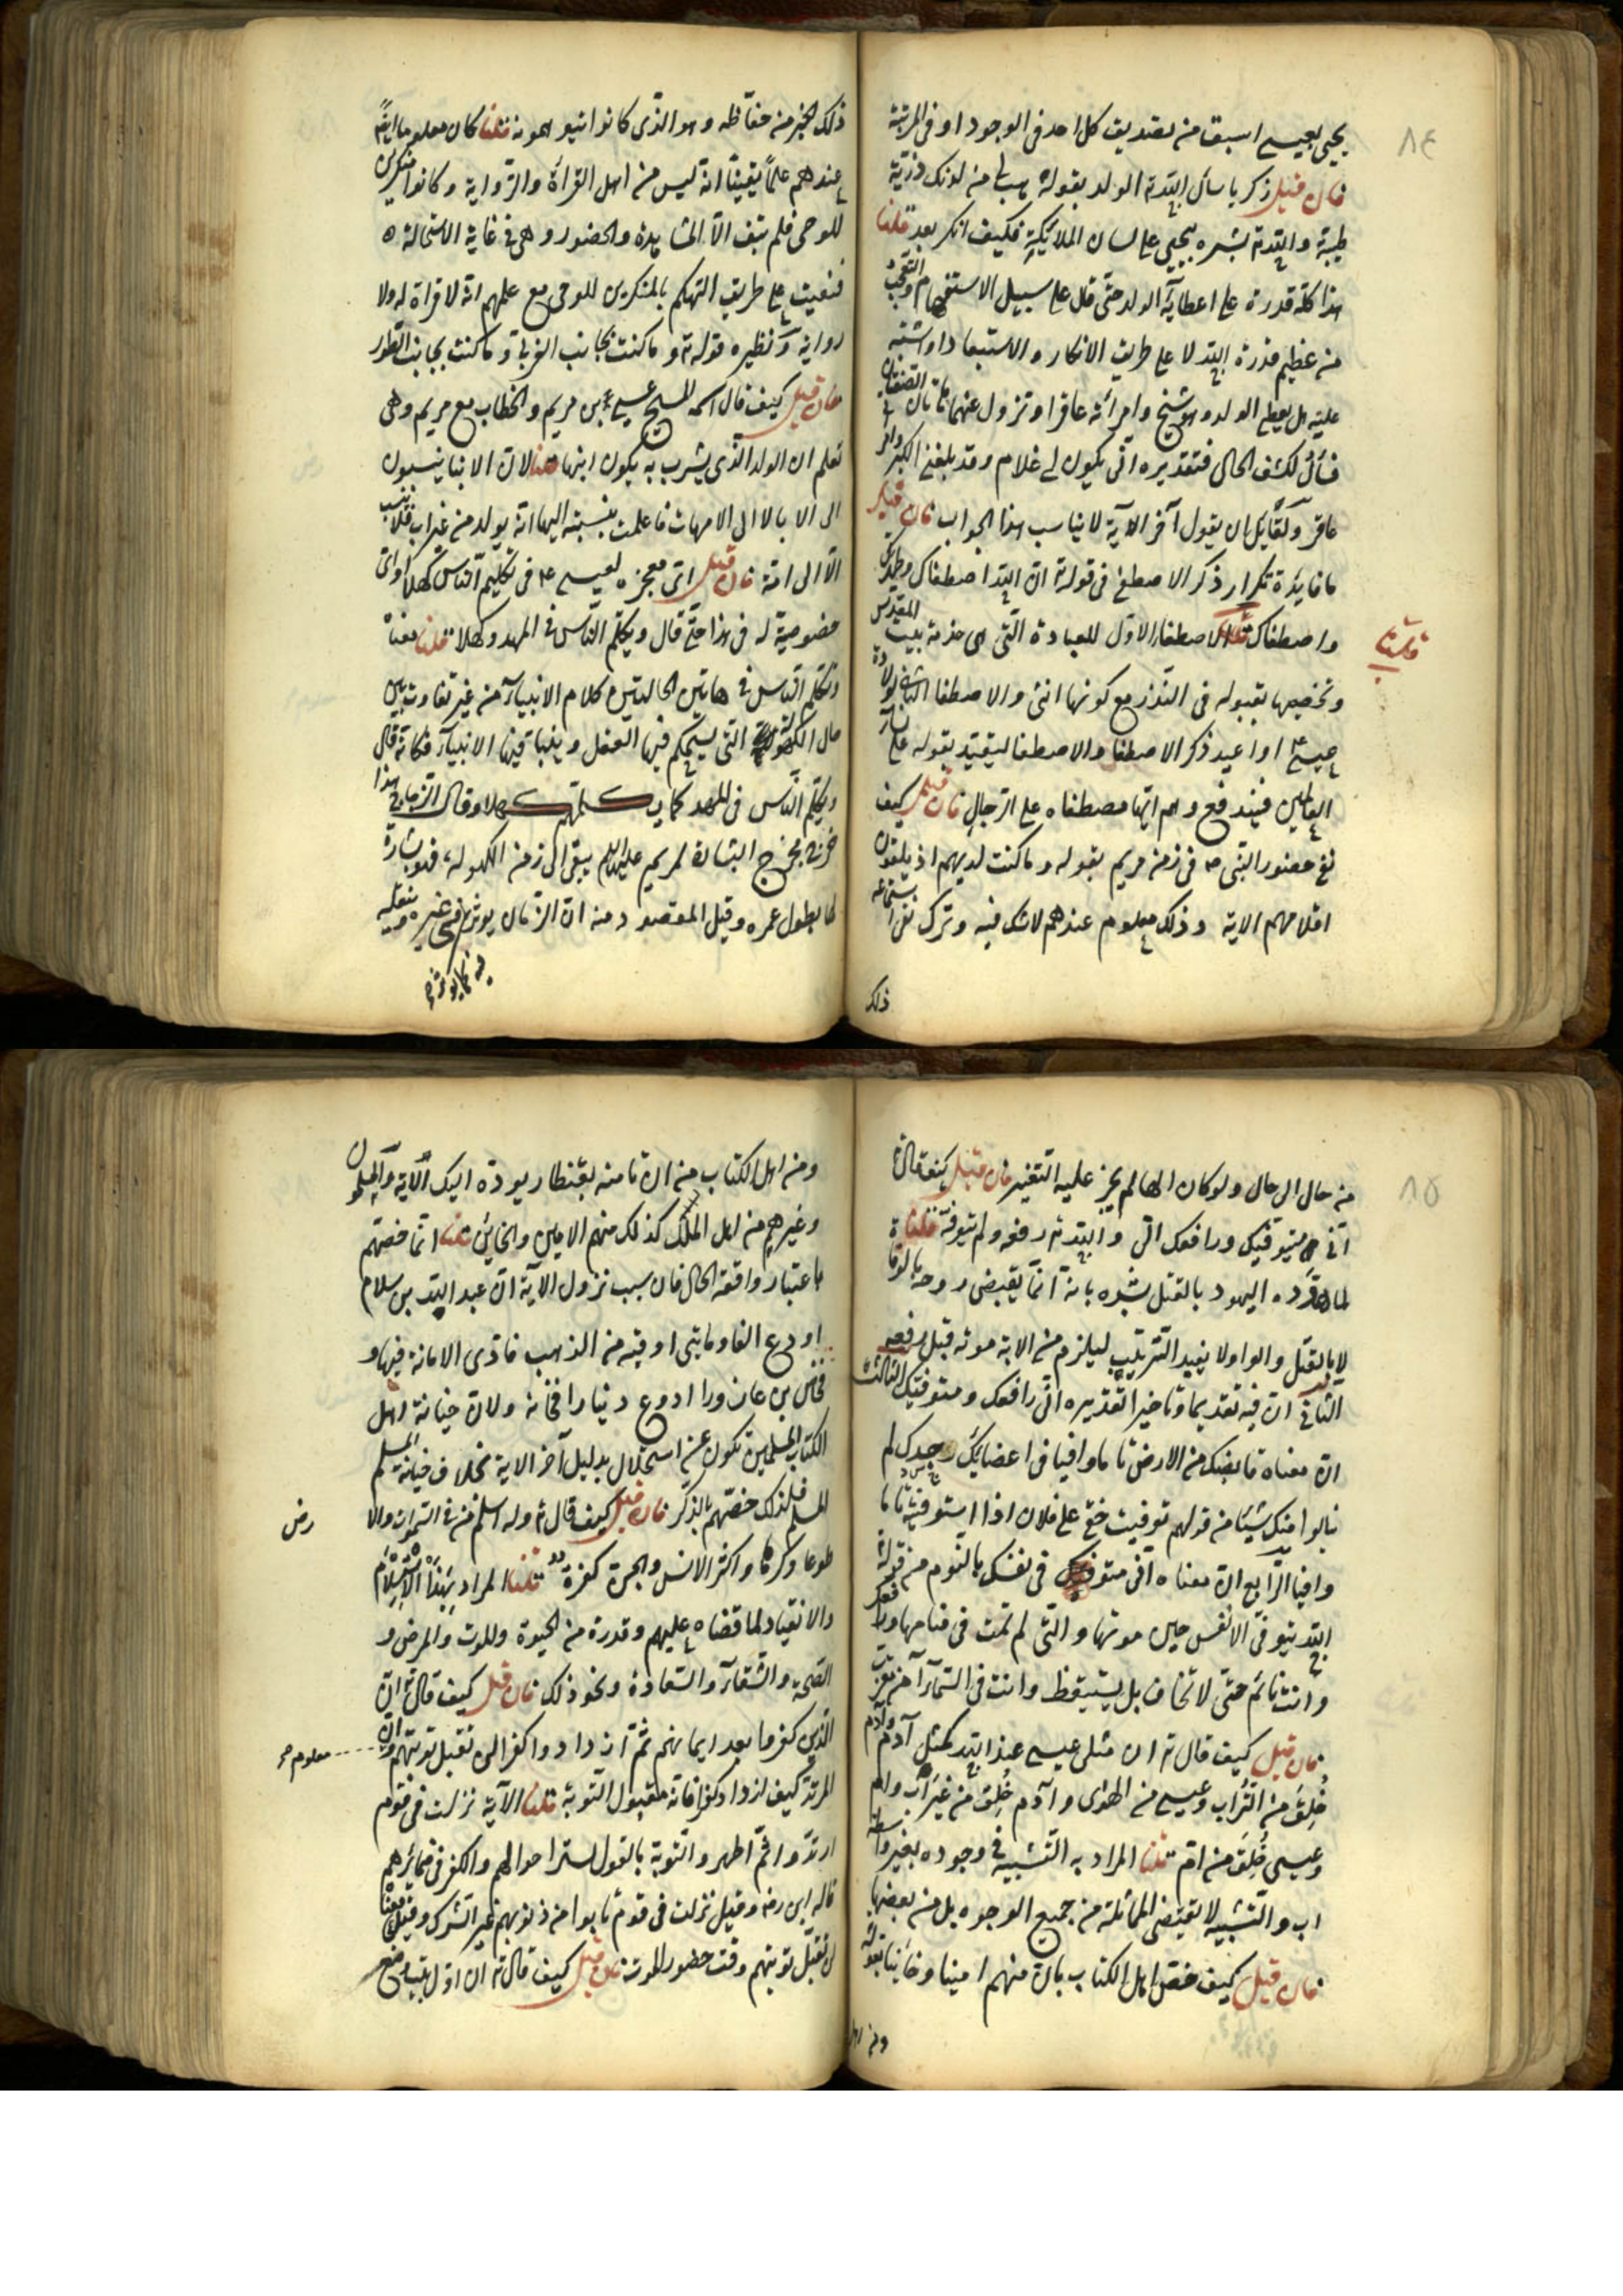 ٨٤
يحيى بعيسى اسبق من تصديق كل احد فى الوجود او فى المرتبة
فان قيل زكريا سأل الله تع الولد بقوله هب لى من لدنك ذرية
طيبة والله تع بشره بيحيى على لسان الملائكة فكيف انكر بعد قلنا
هذا كله قدرة على اعطائه الولد حتى قال على سبيل الاستفهام والتعجب
من عظيم قدرة الله تع لا على طريق الانكار والاستبعاد او اشتبه
عليه هل يعطى الولد وهو شيخ وامرأته عاقر او تزول عنهما هاتان الصفتان
فسأل لكشف الحال فتقديره انى يكون لى غلام وقد بلغنى الكبر وامرأتى
عاقر ولقائل ان يقول آخر الآية لا يناسب هذا الجواب فان قيل
ما فائدة تكرار ذكر الاصطفى فى قوله تع ان الله اصطفاك وطهرك
واصطفاك قلنا الاصطفاء الاول للعبادة التى هى خدمة بيت المقدس
قلنا
وتخصيصها بقبوله فى النذر مع كونها انثى والاصطفا الثانى لولادة
عيسى ع او اعيد ذكر الاصطفا والاصطفا ليقيد بقوله على نساء
العالمين فيندفع وهم انها مصطفاه على الرجال فان قيل كيف
نفى حضور النبى ص فى زمن مريم بقوله وما كنت لديهم اذ يلقون
اقلامهم الاية وذلك معلوم عندهم لا شك فيه وترك نفى استماعه
ذلك
ذلك الخبر من حفاظه وهو الذى كانوا يتوهمونه قلنا كان معلوما ايضا
عندهم علما يقينا انه ليس من اهل القراة والرواية وكانوا منكرين
للوحى فلم يبق الا المشاهدة والحضور وهى فى غاية الاستحالة
فنفيت على طريق التهكم بالمنكرين للوحى مع علمهم انه لا قراة له ولا
رواية ونظيره قوله تع وما كنت بجانب الغربى وما كنت بجانب الطور
فان قيل كيف قال اسمه المسيح عيسى ع بن مريم والخطاب مع مريم وهى
تعلم ان الولد الذى يبشرت به يكون ابنها قلنا لان الانبيا ينسبون
الى الابا لا الى الامهات فاعلمت بنسبته اليها انه يولد من غير اب فلا ينسب
الا الى امه فان قيل اى معجزه لعيسى ع فى تكليم الناس كهلا واى
خصوصية له فى هذا حتى قال ويكلم الناس فى المهد وكهلا قلنا معناه
وتكلم الناس فى هاتين الحالتين كلام الانبياء من غير تفاوت بين
حال الكهولة التى يستحكم فيها العقل وينبأ فيها الانبياء فكانه قال
ويكلم الناس فى المهد كما يكلمهم كهلا وقال الزجاج هذا
خرج مخرج البشارة لمريم عليها السلام يبقى الى زمن الكهولة فهو بشارة
لها بطول عمره وقيل المقصود منه ان الزمان يوثر فيه كما يوثر فى غيره وينقله
٨٥
من حال الى حال ولو كان الها لم يجز عليه التغير فان قيل كيف قال تع
انى متوفيك ورافعك الى والله تع رفعه ولم يتوفه قلنا
لما هدده اليهود بالقتل بشره بانه انما يقبض روحه بالوفا
لا بالقتل والواو لا يفيد الترتيب ليلزم من الاية موته قبل رفعه
الثانى ان فيه تقديما وتاخيرا تقديره انى رافعك ومتوفيك الثالث
ان معناه قابضك من الارض تاما وافيا فى اعضائك وجسدك لم
ينالوا منك شيئا من قولهم توفيت حقى على فلان اذا استوفيته تاما
وافيا الرابع ان معناه انى متوفيك فى نفسك بالنوم من قوله تع
الله يتوفى الانفس حين موتها والتى لم تمت فى منامها ورافعك
وانت نائم حتى لا تخاف بل يستيقظ وانت فى السماء آمن مقرب
فان قيل كيف قال تع ان مثل عيسى عند الله كمثل آدم وآدم
خلق من التراب وعيسى من الهواى وآدم خلق من غير اب وام
وعيسى خلق من ام قلنا المراد به التشبيه فى وجوده بغير واسطة
اب والتشبيه لا يقتضى المماثلة من جميع الوجوه بل من بعضها
فان قيل كيف خص اهل الكتاب بان منهم امينا وخائنا بقوله
ومن اهل
ومن اهل الكتاب من ان تامنه بقنطار يوده اليك الآية والمسلمون
وغيرهم من اهل الملك كذلك منهم الامين والخائن قلنا انما خصهم
باعتبار واقعة الحال فان سبب نزول الآية ان عبد الله بن سلام
اودع الفا ومايتى اوقية من الذهب فادى الامانة فيها و
فخاص بن عازورا اودع دينارا فخانه ولان خيانة اهل
الكتاب المسلمين تكون عن استحلال بدليل آخر الاية بخلاف خيانة المسلم
المسلم فلذلك خصهم بالذكر فان قيل كيف قال تع وله اسلم من فى السموات والا
رض
طوعا وكرها واكثر الانس والجن كفرة قلنا المراد بهذا الاستسلام
والانقياد لما قضاه عليهم وقدره من الحيوة والموت والمرض و
الصحة والشقاء والسعادة ونحو ذلك فان قيل كيف قال تع ان
الذين كفروا بعد ايمانهم ثم ازدادوا كفرا لن تقبل توبتهم وان
معلوم
المرتد كيف ازداد كفرا فانه مقبول التوبة قلنا الآية نزلت فى قوم
ارتدوا ثم اظهروا التوبة بالقول لستر احوالهم والكفر فى ضمائرهم
قاله ابن رض وقيل نزلت فى قوم تابوا من ذنوبهم غير الشرك وقيل معناه
لن تقبل توبتهم وقت حضور الموت فان قيل كيف قال تع ان اول بيت وضع